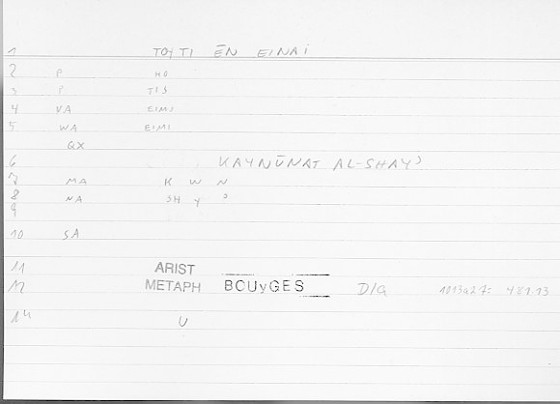 1 TO, TI ĒN EINAI
2 P HO
3 P TIS
4 VA EIMI
5 WA EIMI
QX
6 KAYNŪNAT AL-SHAYʾ
7 MA K W N
8 NA SH Y ʾ
9
10 SA
11 ARIST
12 METAPH BOUyGES D/G 1013a27: 481.13
14 U